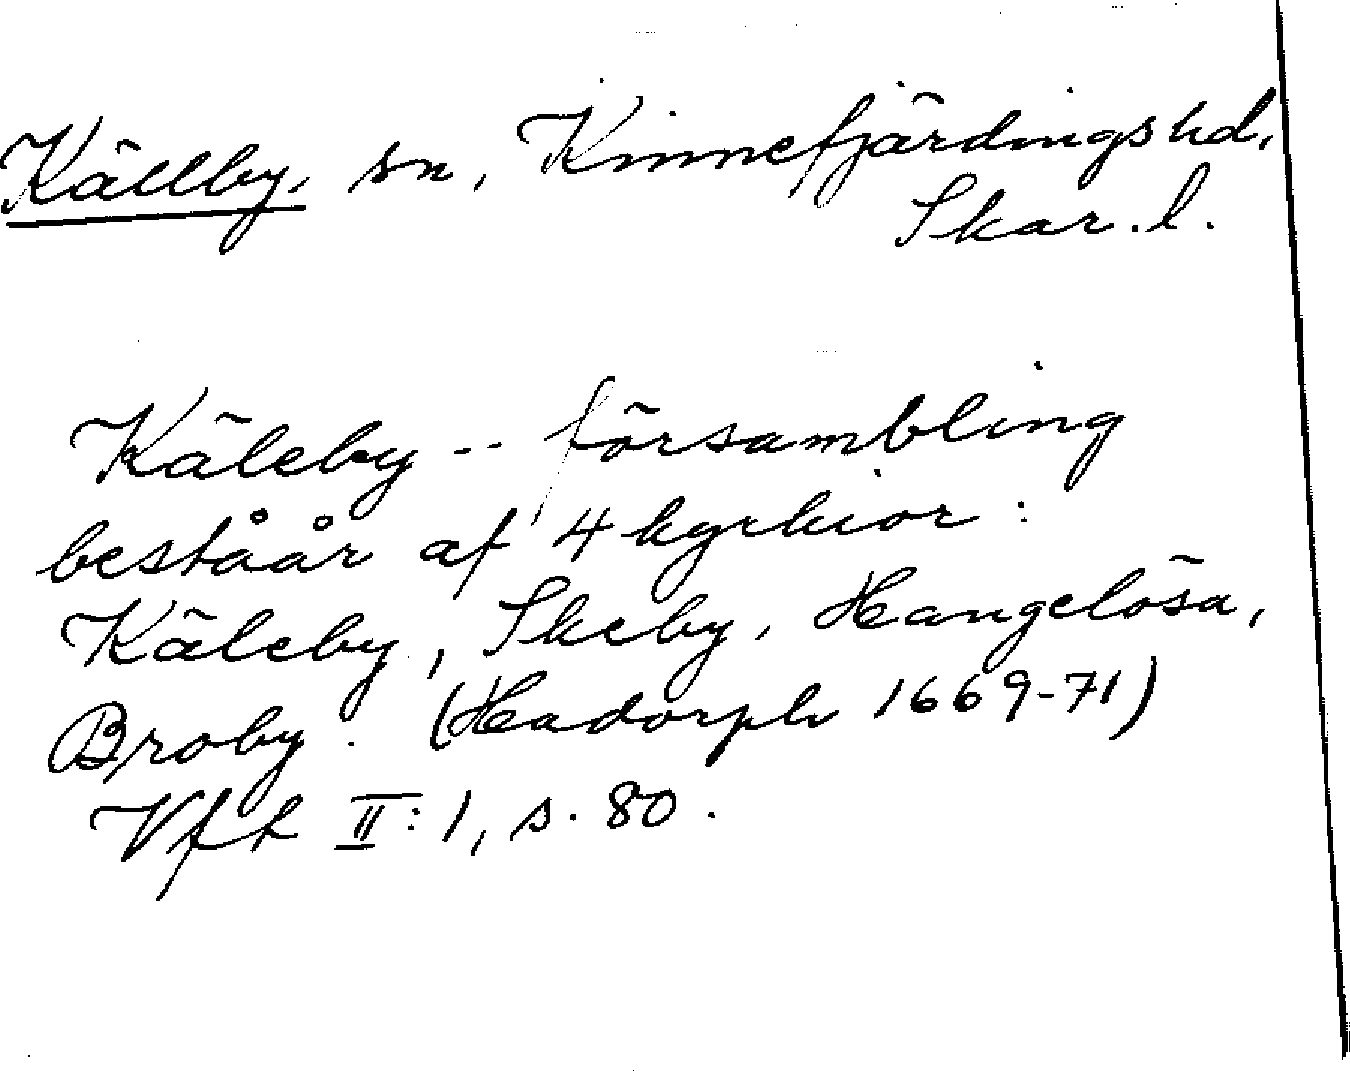 Källby, sn, Kinnefjärdingshd,
Skar. l.
Käleby -- försambling
beståår af 4 kyrkior:
Käleby, Skeby, Hangelösa,
Broby. (Hadorph 1669-71)
Vft II:1, s. 80.